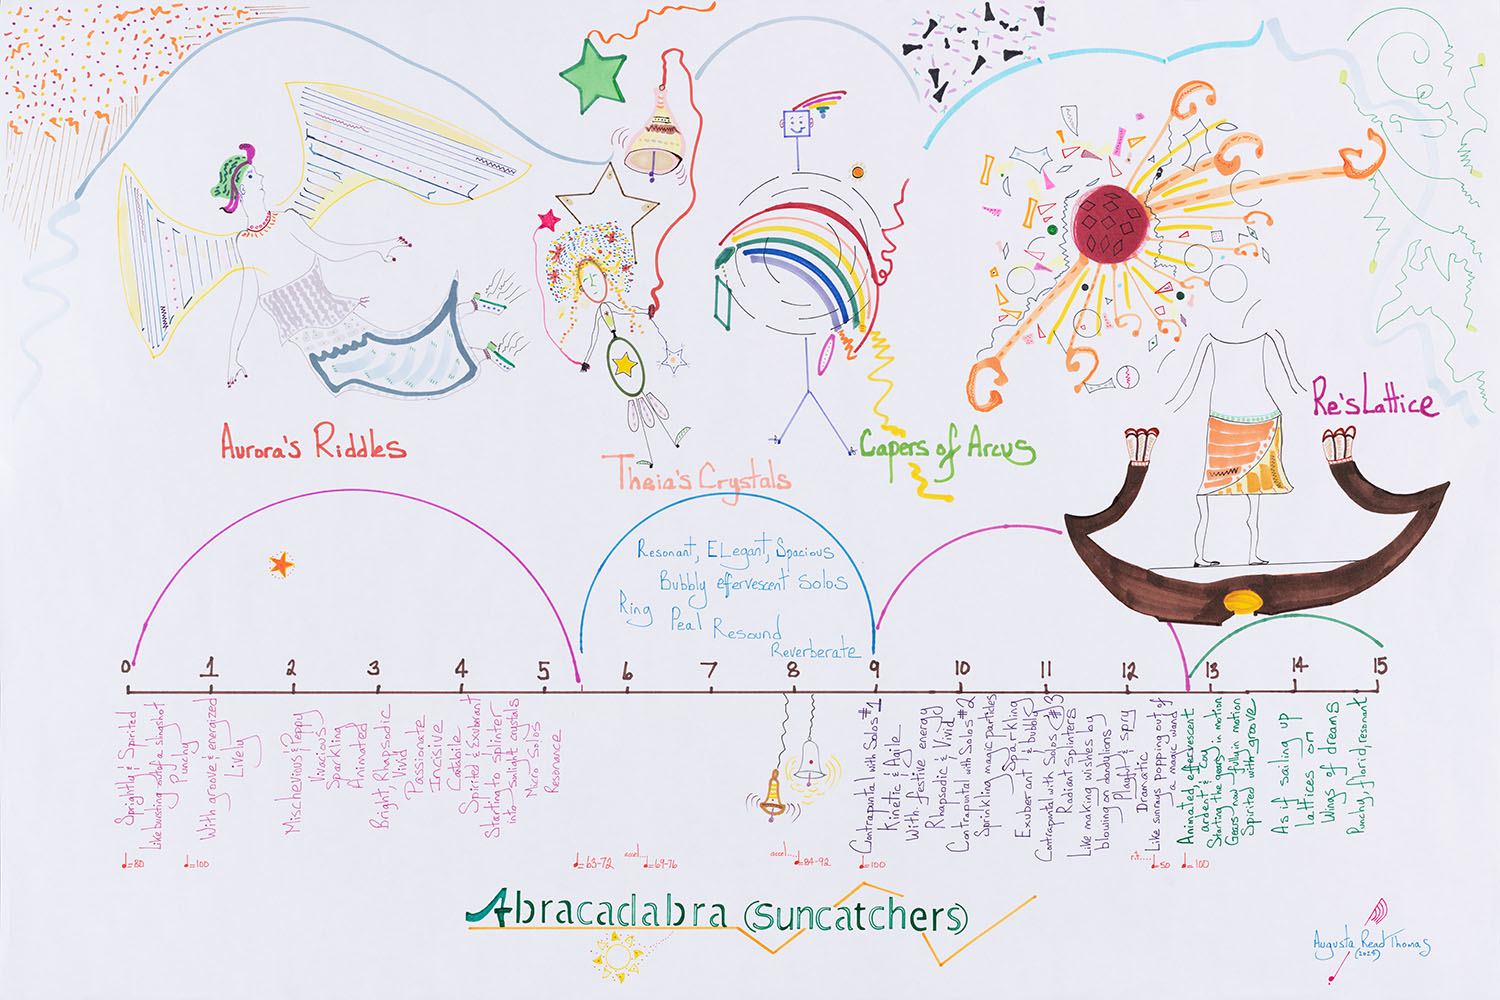 Aurora's Riddles
Theia's Crystals
Capers of Arcus
Re's Lattice
Resonant, Elegant, Spacious
Bubbly effervescent solos
Ring
Peal
Resound
Reverberate
0 1 2 3 4 5 6 7 8 9 10 11 12 13 14 15
Sprightly & Spirited
Like bursting out of a slingshot
Punchy
With groove & energized
Lively
Mischevious & Peppy
Vivacious
Sparkling
Animated
Bright, Rhapsodic
Vivid
Passionate
Incisive
Catabile
Spirited & Exubarant
Starting to splinter
into sunlight crystals
Micro Solos
Resonance
Contrapuntal with Solos #1
Kinetic & Agile
With festive energy
Rhapsodic & Vivid
Contrapuntal with Solos #2
Sprinkling magic particles
Sparkling
Exuberant & bubbly
Contrapuntal with Solos #3
Radiant splinters
Like making wishes by
blowing on dandylions
Playful & spry
Dramatic
Like sunrays popping out of
a magic wand
Animated, effervescent
ardent, & tay
Starting the gears in motion
Gears now fully in motion
Spirited with groove
As if sailing up
lattices on
Wings of dreams
Punchy, florid, resonant
♩=80
♩=100
♩=63-72
accel....
♩=69-76
accel....
♩=84-92
♩=100
rit....
♩=50
♩=100
Abracadabra (Suncatchers)
Augusta Read Thomas
(2024)